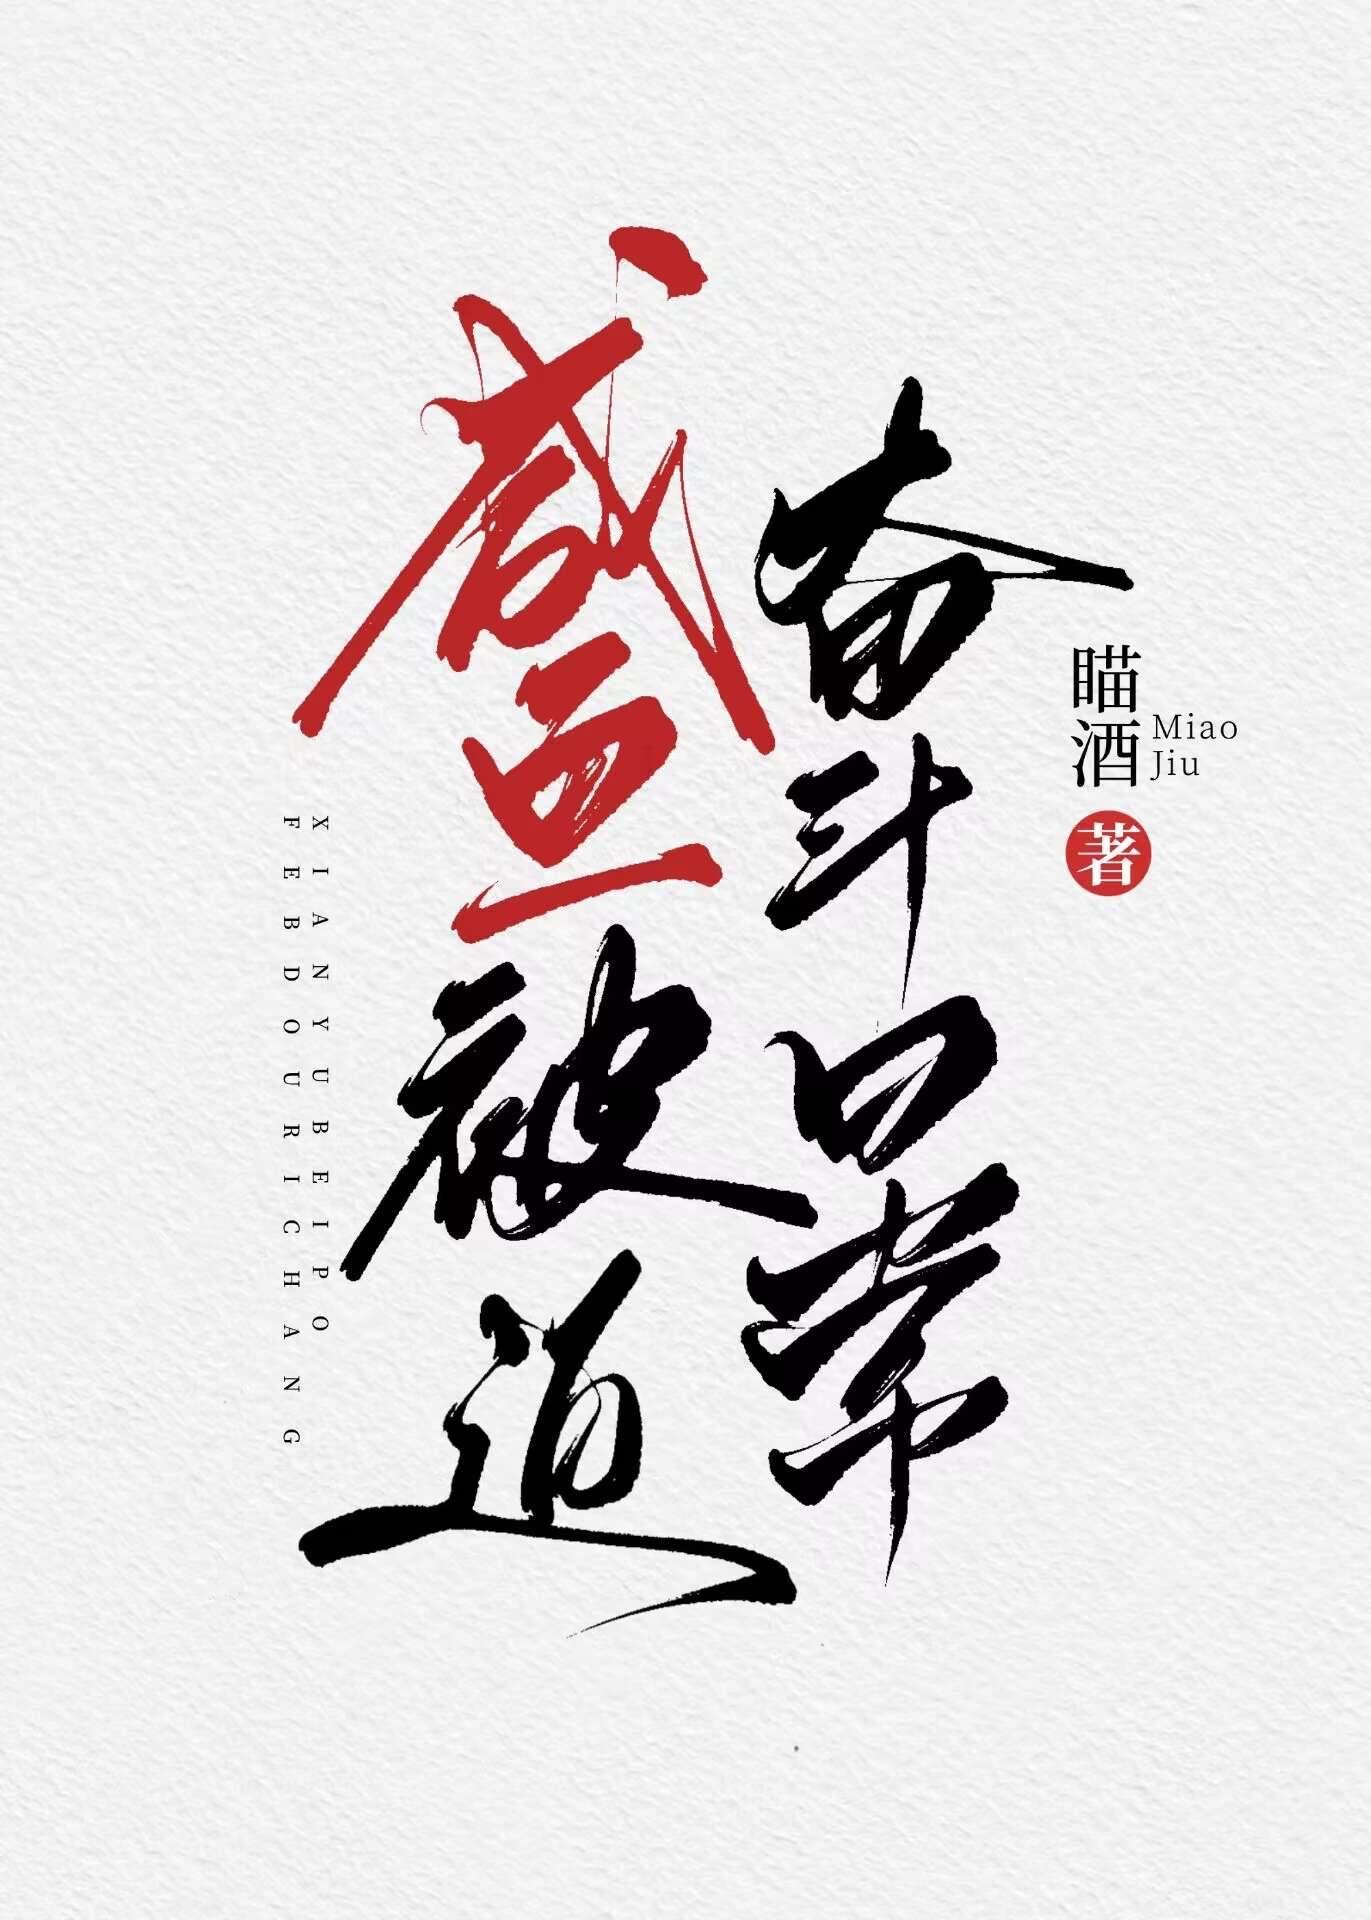 咸鱼被迫
奋斗日常
瞄酒
Miao
Jiu
著
XIANYUBEIPO
FEBDOURICHANG